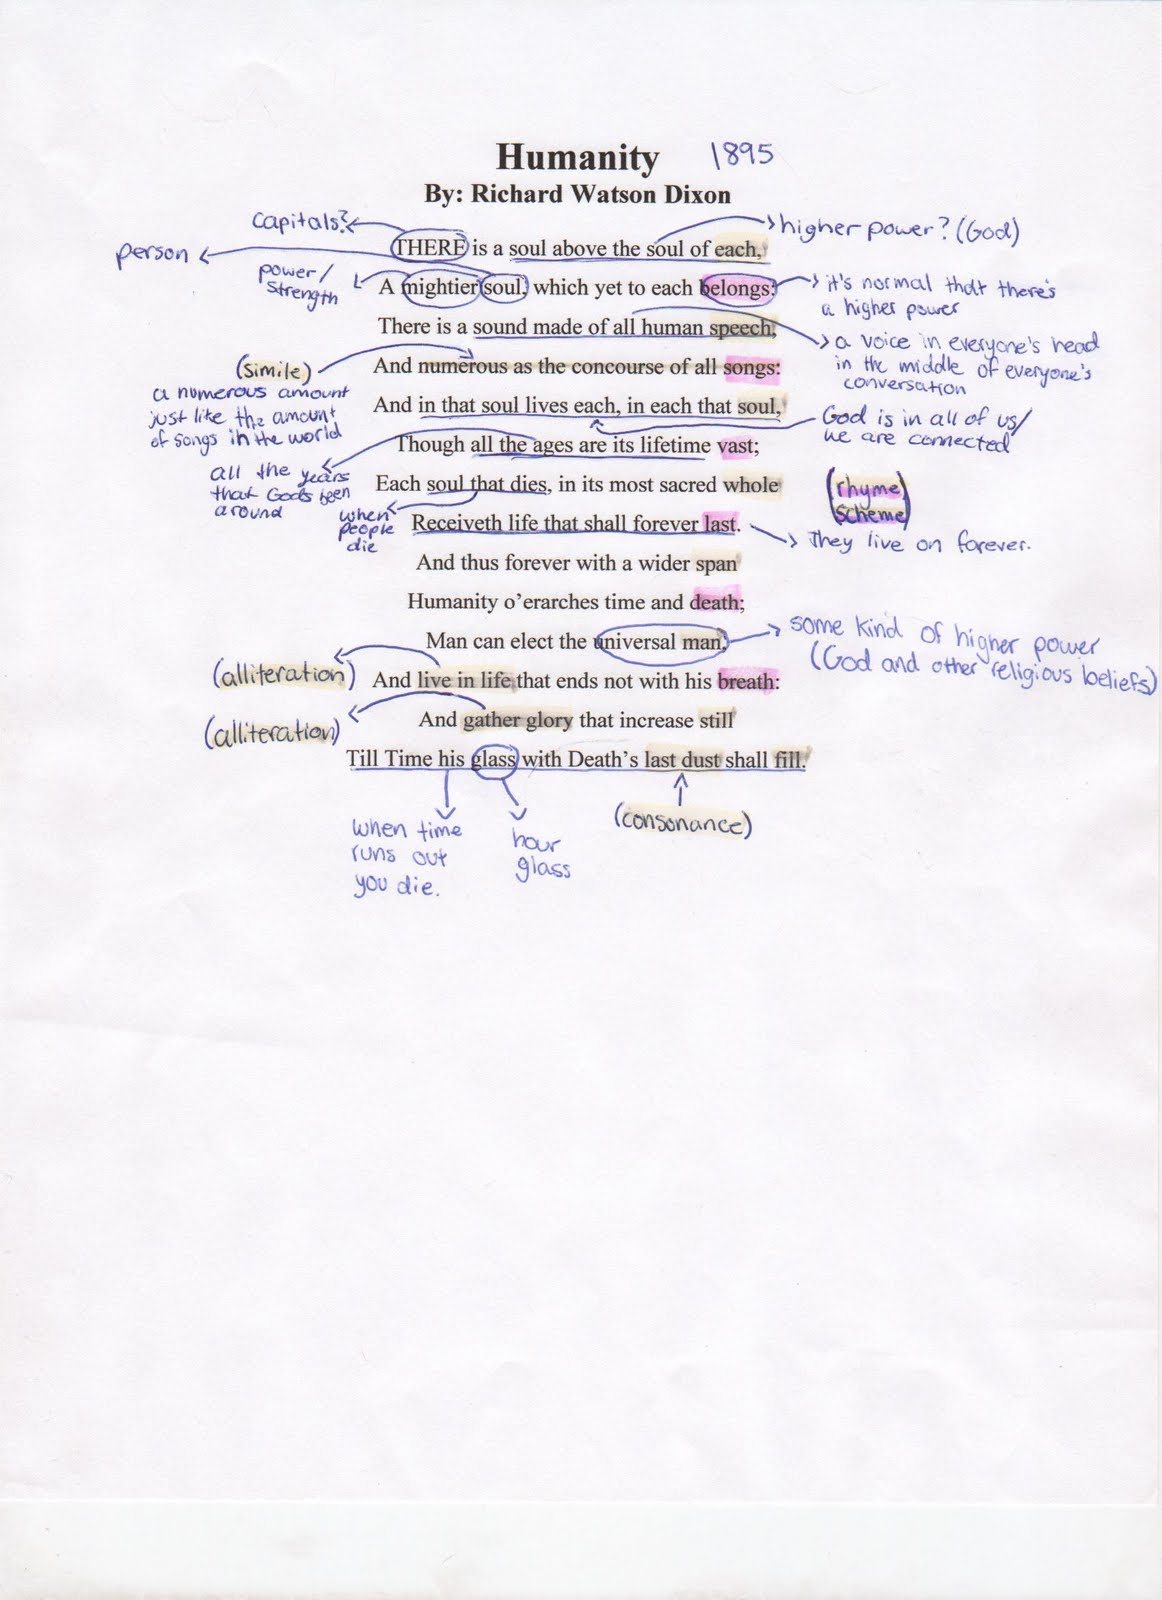 Humanity 1895
By: Richard Watson Dixon
capitals?
higher power? (God)
person
THERE is a soul above the soul of each,
power/
strength
A mightier soul, which yet to each belongs:
it's normal that there's
a higher power
There is a sound made of all human speech,
a voice in everyone's head
in the middle of everyone's
conversation
(simile)
a numerous amount
just like the amount
of songs in the world
And numerous as the concourse of all songs:
And in that soul lives each, in each that soul,
God is in all of us/
we are connected
Though all the ages are its lifetime vast;
all the years
that God's been
around
Each soul that dies, in its most sacred whole
(rhyme
scheme)
when
people
die
Receiveth life that shall forever last.
They live on forever.
And thus forever with a wider span
Humanity o'erarches time and death;
Man can elect the universal man,
some kind of higher power
(God and other religious beliefs)
(alliteration)
And live in life that ends not with his breath:
(alliteration)
And gather glory that increase still
Till Time his glass with Death's last dust shall fill.
when time
runs out
you die.
hour
glass
(consonance)